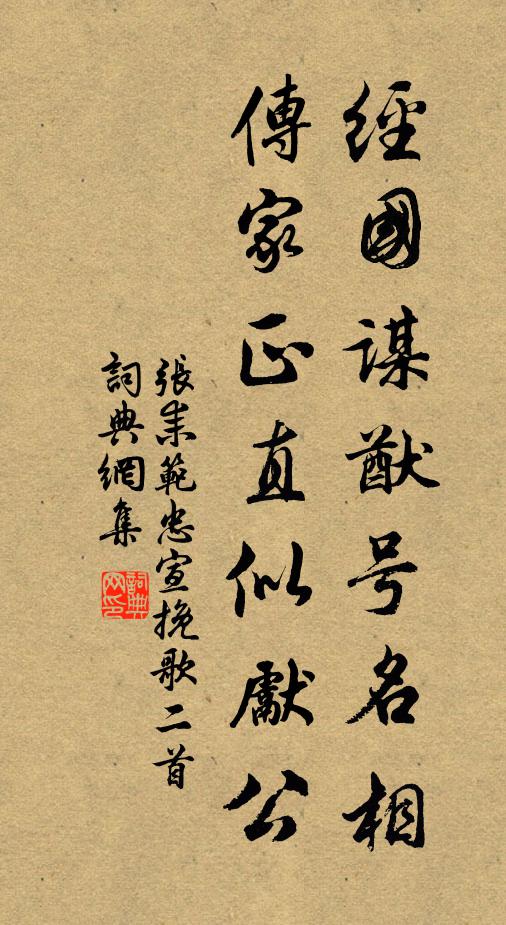 經國謀猷号名相
傳家正直似獻公
張耒範忠宣挽歌二首
詞典網集
詞典网印